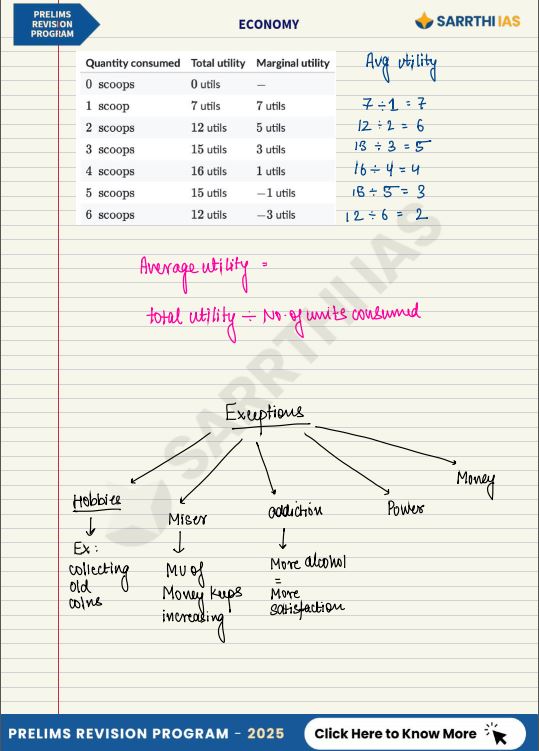 PRELIMS
REVISION
PROGRAM
ECONOMY
SARRTHI IAS
Quantity consumed Total utility Marginal utility Avg utility
0 scoops 0 utils –
1 scoop 7 utils 7 utils 7 ÷ 1 = 7
2 scoops 12 utils 5 utils 12 ÷ 2 = 6
3 scoops 15 utils 3 utils 15 ÷ 3 = 5
4 scoops 16 utils 1 utils 16 ÷ 4 = 4
5 scoops 15 utils −1 utils 15 ÷ 5 = 3
6 scoops 12 utils −3 utils 12 ÷ 6 = 2
Average utility =
total utility ÷ No. of units consumed
SARRTHI IAS
Exceptions
Hobbies Miser addiction Power Money
Ex:
collecting
old
coins
MU of
Money keeps
increasing
More alcohol
=
More
satisfaction
PRELIMS REVISION PROGRAM - 2025 Click Here to Know More